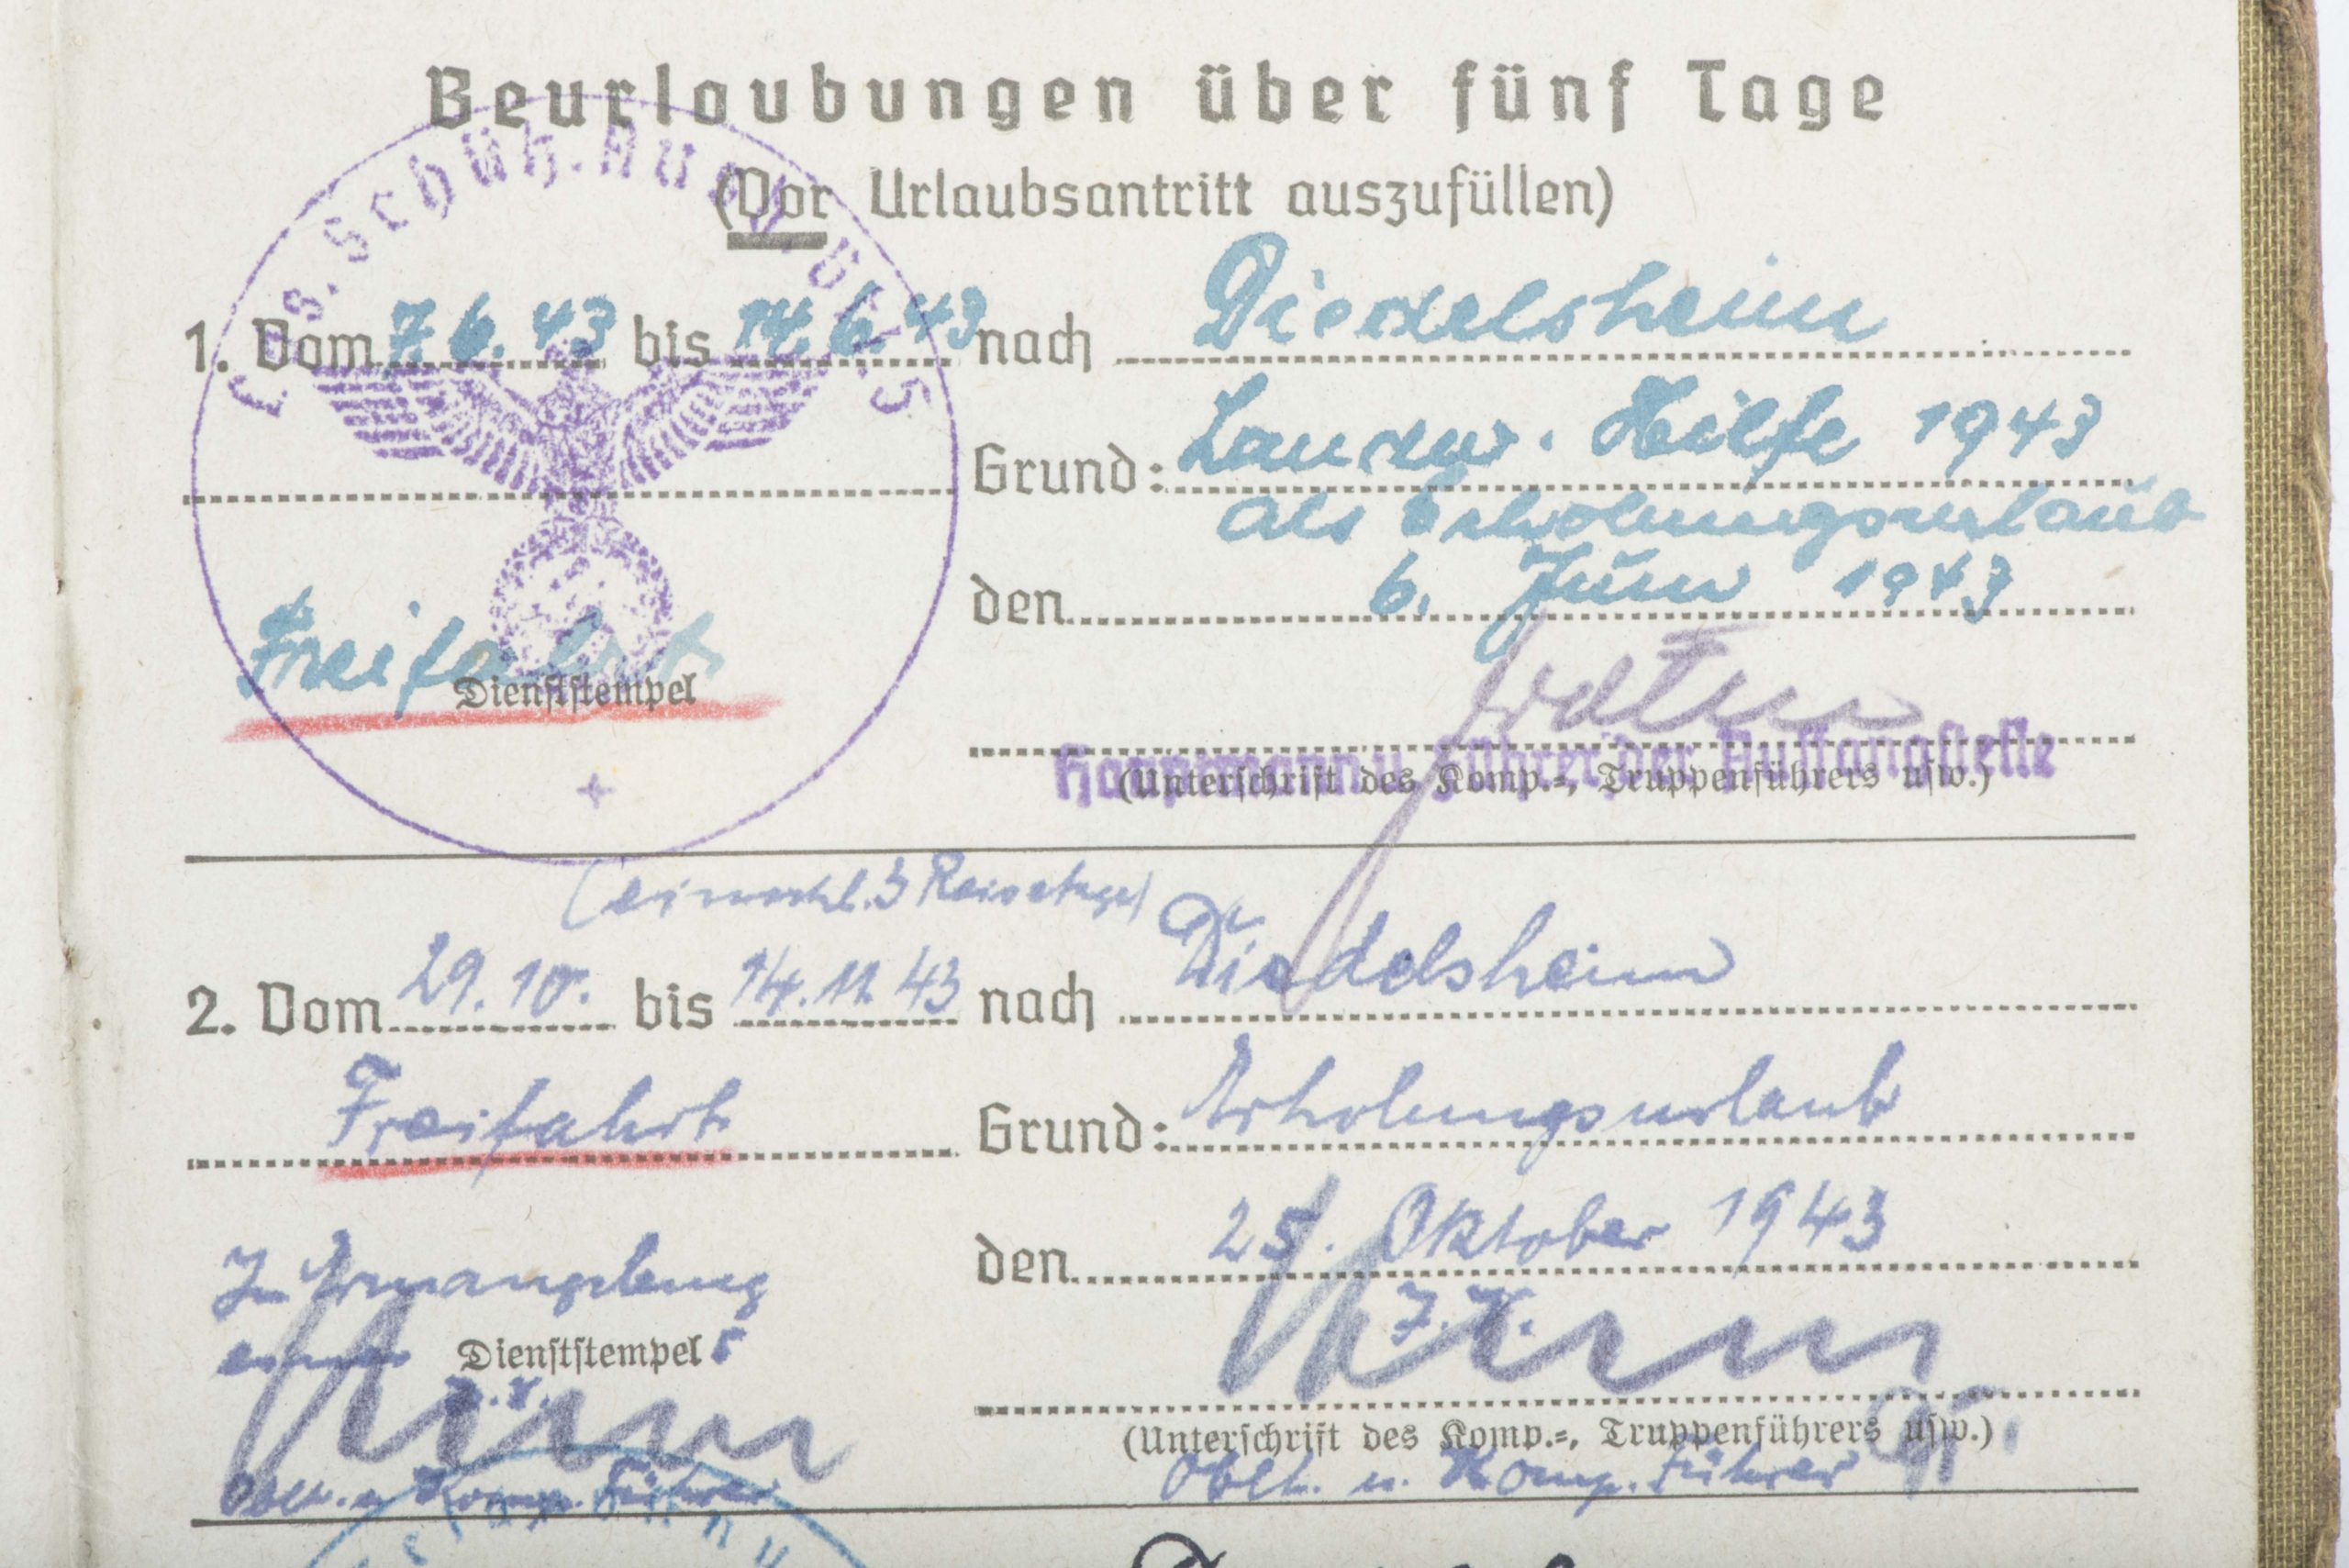 Beurlaubungen über fünf Tage
(Vor Urlaubsantritt auszufüllen)
1. Vom 7.6.43 bis 14.6.43 nach Diedelsheim
Grund: Landw. Hilfe 1943
als Erholungsurlaub
den 6. Juni 1943
Freifahrt
Dienststempel
Hauptmann u. Führer der Auffangstelle
(Unterschrift des Komp.-, Truppenführers usw.)
(einschl. 3 Reisetage)
2. Vom 29.10. bis 14.11.43 nach Diedelsheim
Freifahrt Grund: Erholungsurlaub
den 25. Oktober 1943
In Ermangelung
eines Dienststempels
J.V.
J.V.
(Unterschrift des Komp.-, Truppenführers usw.)
Oblt. u. Komp. Führer Oblt. u. Komp. Führer